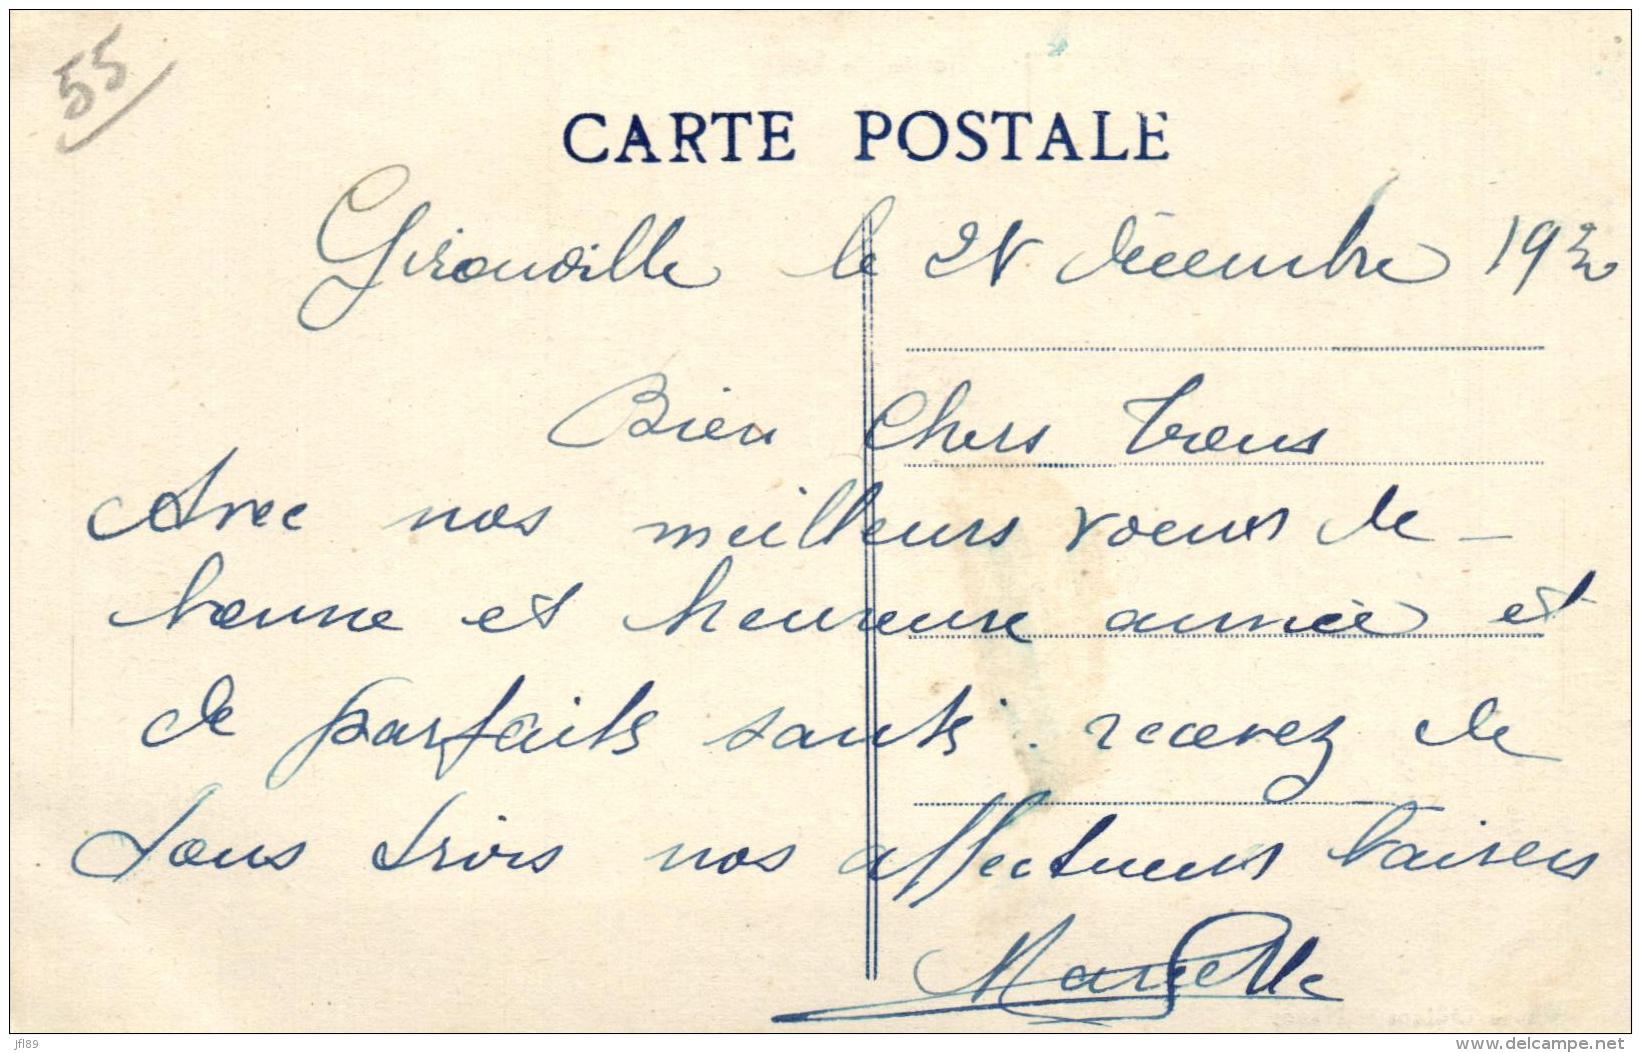 55
CARTE POSTALE
Girouville le 28 décembre 193
Bien Chers Tous
Avec nos meilleurs voeux de
bonne et heureuse année et
de parfaite santé. recevez de
tous trois nos affectueux baisers
Marcelle
jfl89
delcampe.net